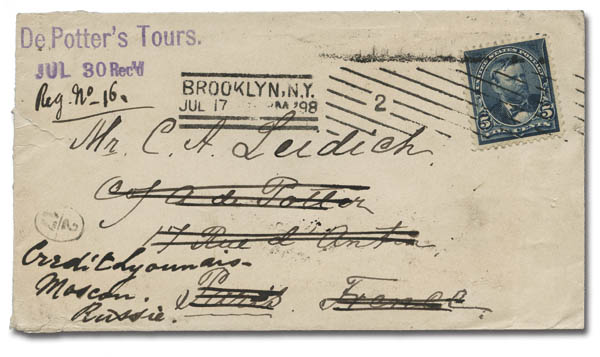 De Potter's Tours.
JUL 30 Rec'd
Reg. No-16.
BROOKLYN, N.Y.
JUL 17 M '98
2
UNITED STATES POSTAGE
5 5
FIVE CENTS
Mr. C. A. Leidich.
C/o A de Potter
17 Rue d'Antin
Paris. France
Credit Lyonnais-
Moscou.
Russie.